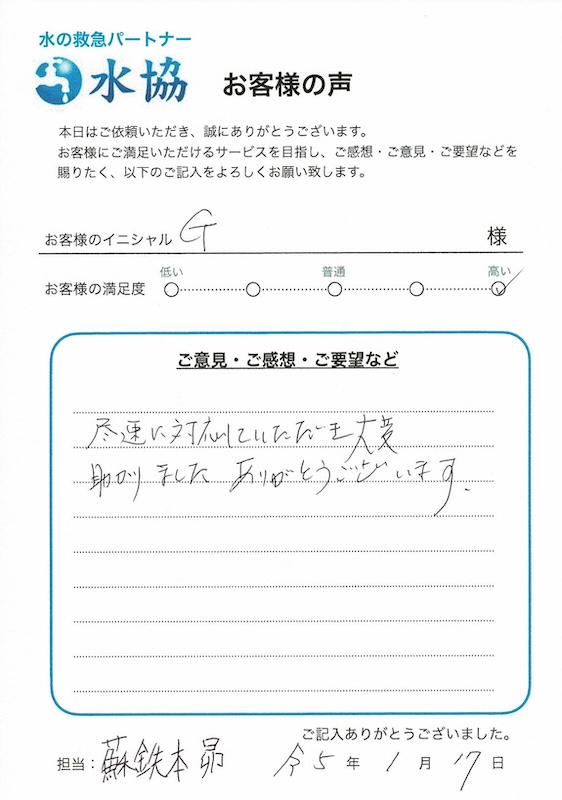 水の救急パートナー
水協 お客様の声
本日はご依頼いただき、誠にありがとうございます。
お客様にご満足いただけるサービスを目指し、ご感想・ご意見・ご要望などを
賜りたく、以下のご記入をよろしくお願い致します。
お客様のイニシャル G 様
低い 普通 高い
お客様の満足度
ご意見・ご感想・ご要望など
尽速に対応していただき大変
助かりました ありがとうございます.
ご記入ありがとうございました。
担当: 蘇鉄本 昴 令5年1月17日